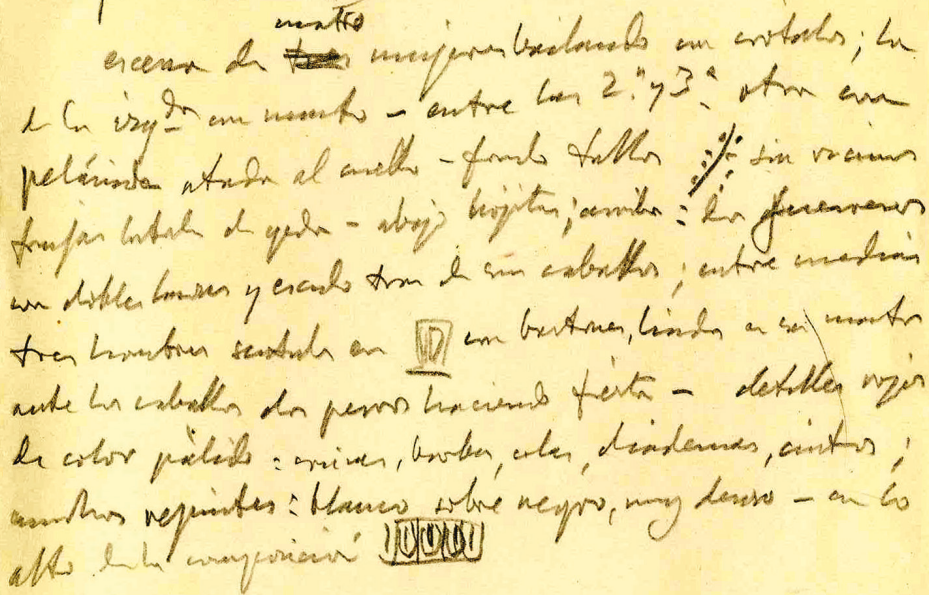 cuatro
escena de tres mujeres bailando con crótalos; la
de la izqda con manto – entre las 2.ª y 3.ª otra con
atada al cuello – fondo tallos sin racimos
franjas laterales de yedra – abajo hojitas; arriba: dos guerreros
con dobles lanzas y escudo tras de sus caballos; entre medias
tres hombres sentados en con bastones, liados en su manto
ante los caballos dos perros haciendo fiesta – detalles rojos
de color pálido: crines, barbas, colas, diademas, cintos;
muchos repintes: blanco sobre negro, muy denso – en lo
alto de la composición